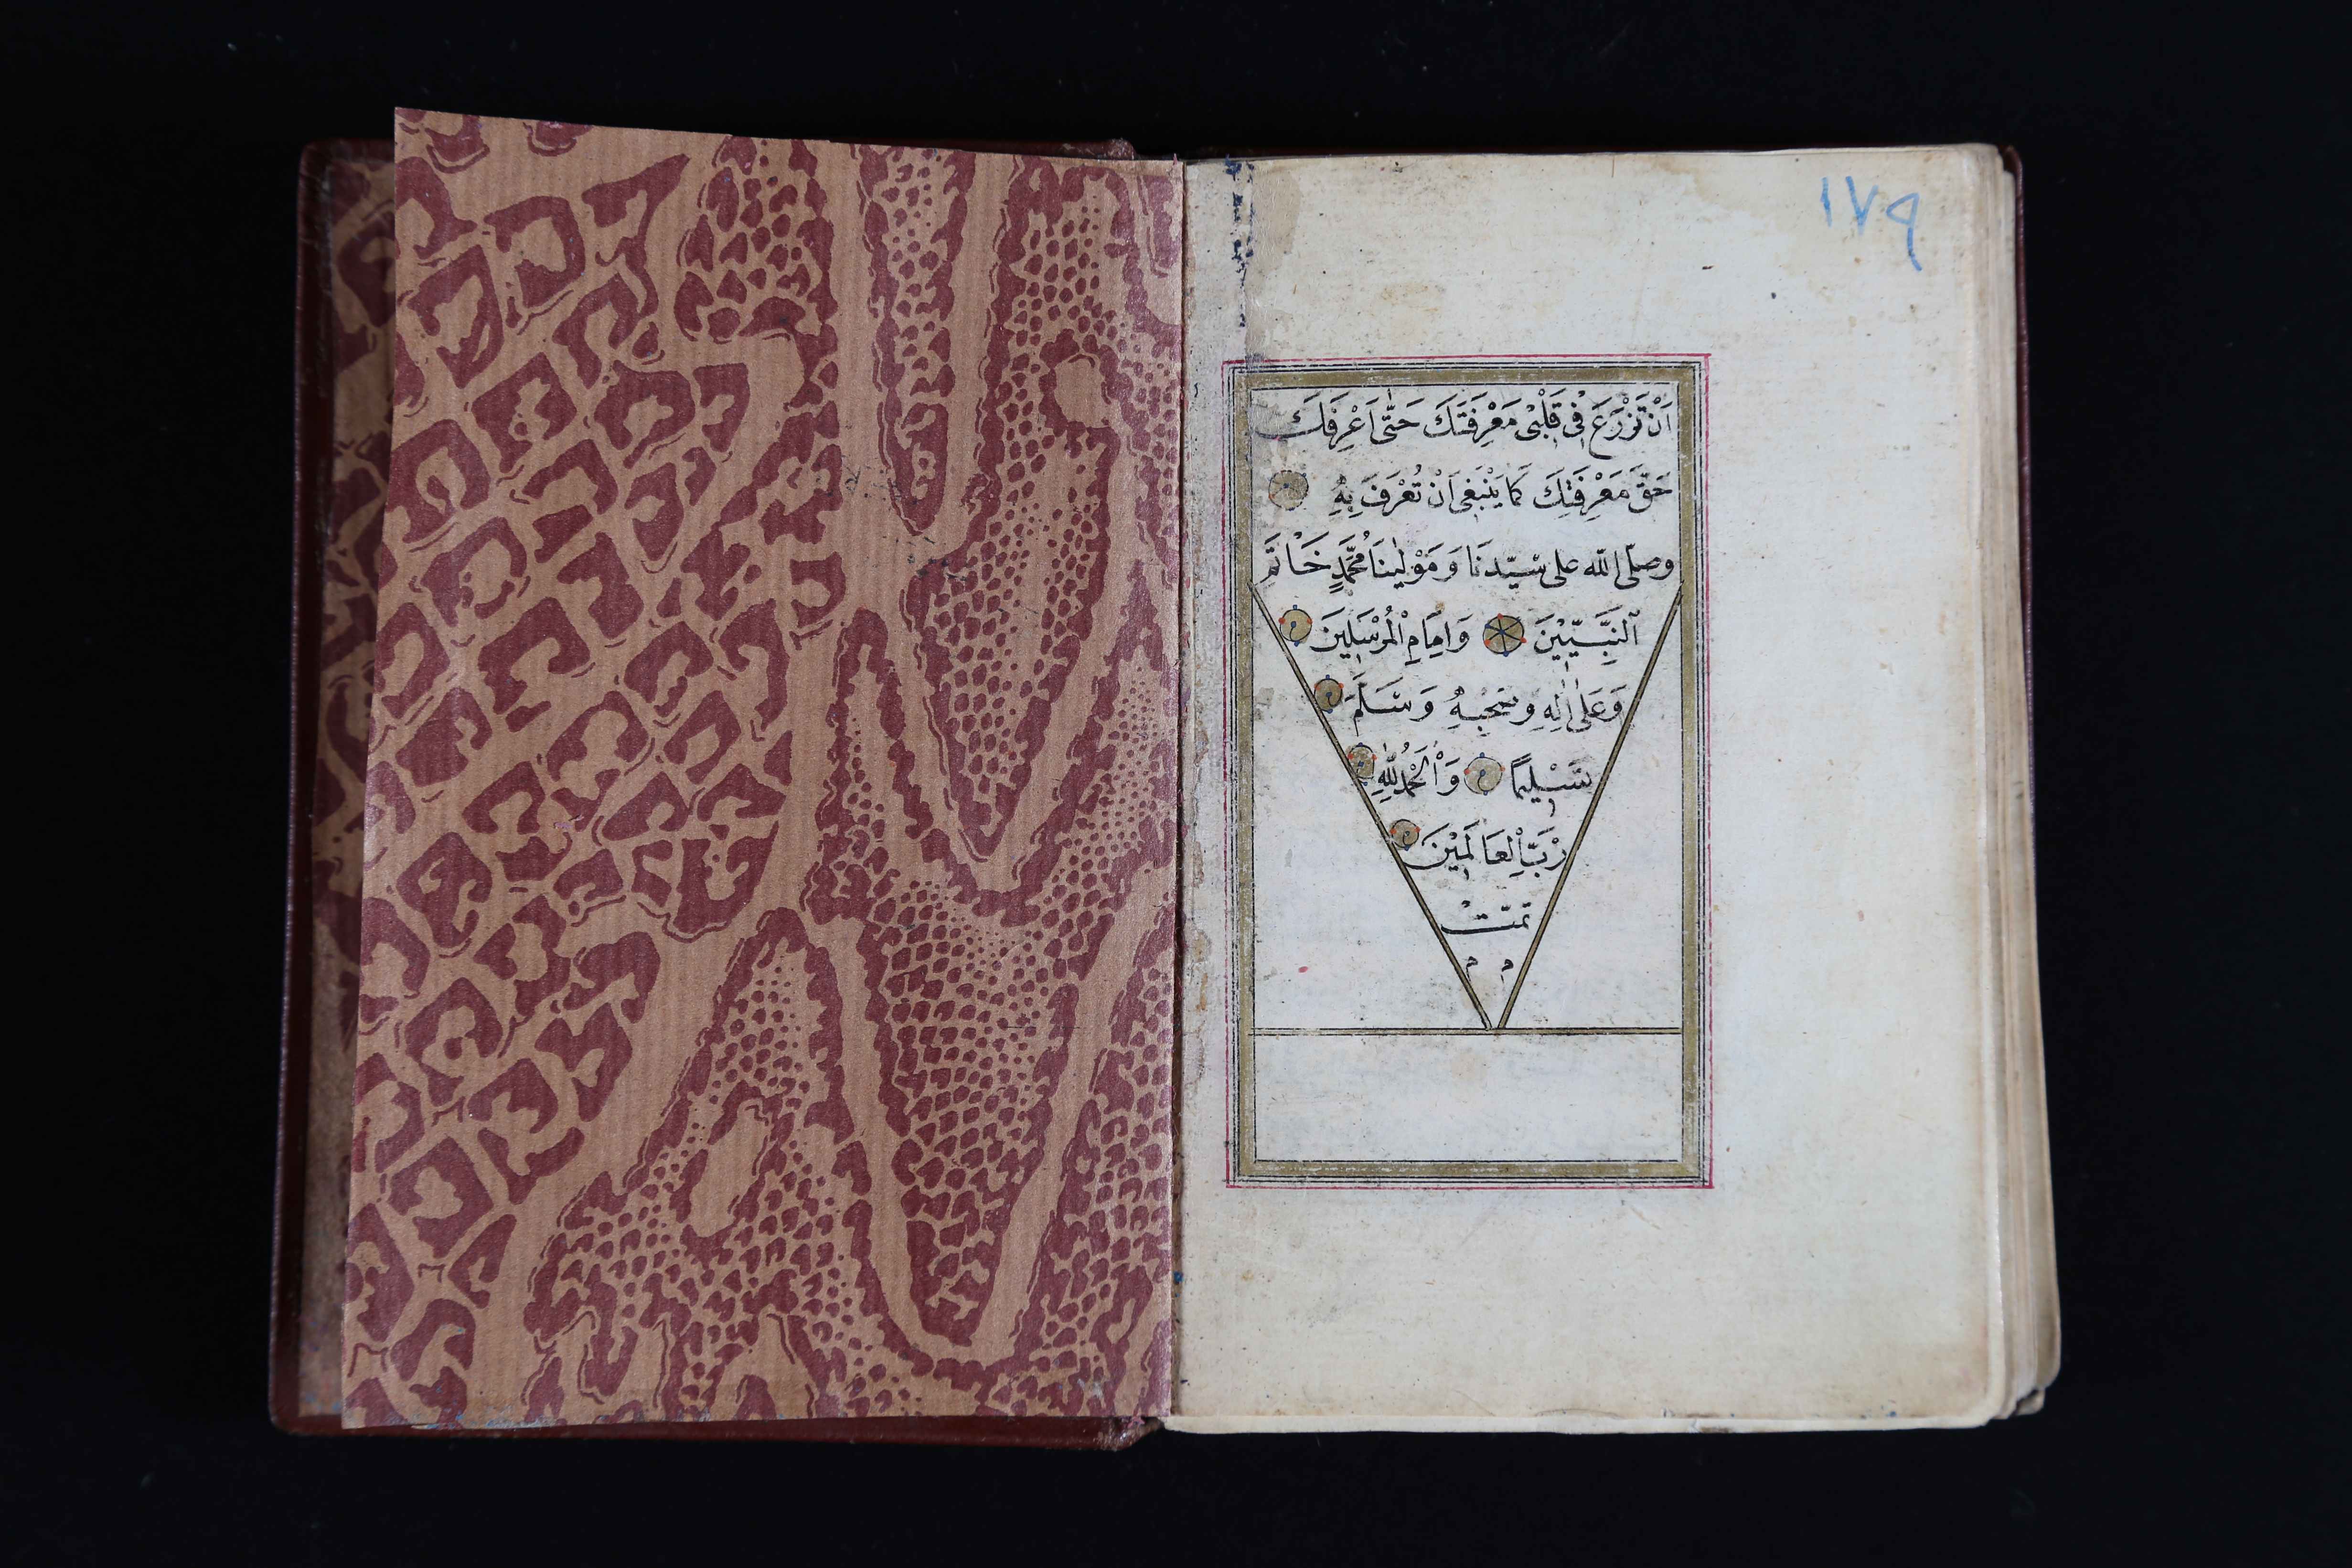 ١٧٩
اَنْ تَزْرَعَ فِى قَلْبِى مَعْرِفَتَكَ حَتّٰى اَعْرِفَكَ
حَقَّ مَعْرِفَتِكَ كَمَا يَنْبَغِى اَنْ تُعْرَفَ بِهِ
وصلّى اللّه على سَيّدنَا وَمَوْلٰينَا مُحَمَّدٍ خَاتَمِ
اَلنَّبِيّيْنَ وَاِمَامِ الْمُرْسَلِينَ
وَعَلٰى اٰلِهِ وصَحْبِهِ وَسَلَّمَ
تَسْلِيمًا وَالْحَمْدُ لِلّٰهِ
رَبِّ الْعَالَمِيْنَ
تمتّت
م م